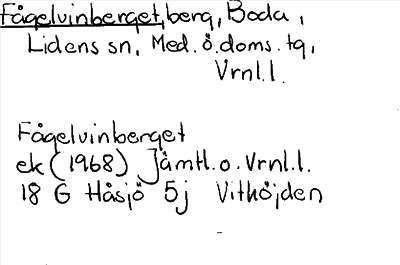 Fågelvinberget, berg, Boda,
Lidens sn, Med. ö. doms. tg,
Vrnl.l.
Fågelvinberget
ek (1968) Jämtl. o. Vrnl.l.
18 G Håsjö 5j Vithöjden